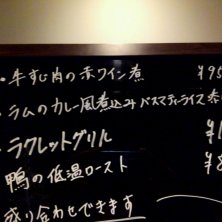 ・牛すじ肉の赤ワイン煮 ¥95
・ラムのカレー風煮込み バスマティライス添
・ラクレットグリル ¥1
鴨の低温ロースト ¥8
盛り合わせできます